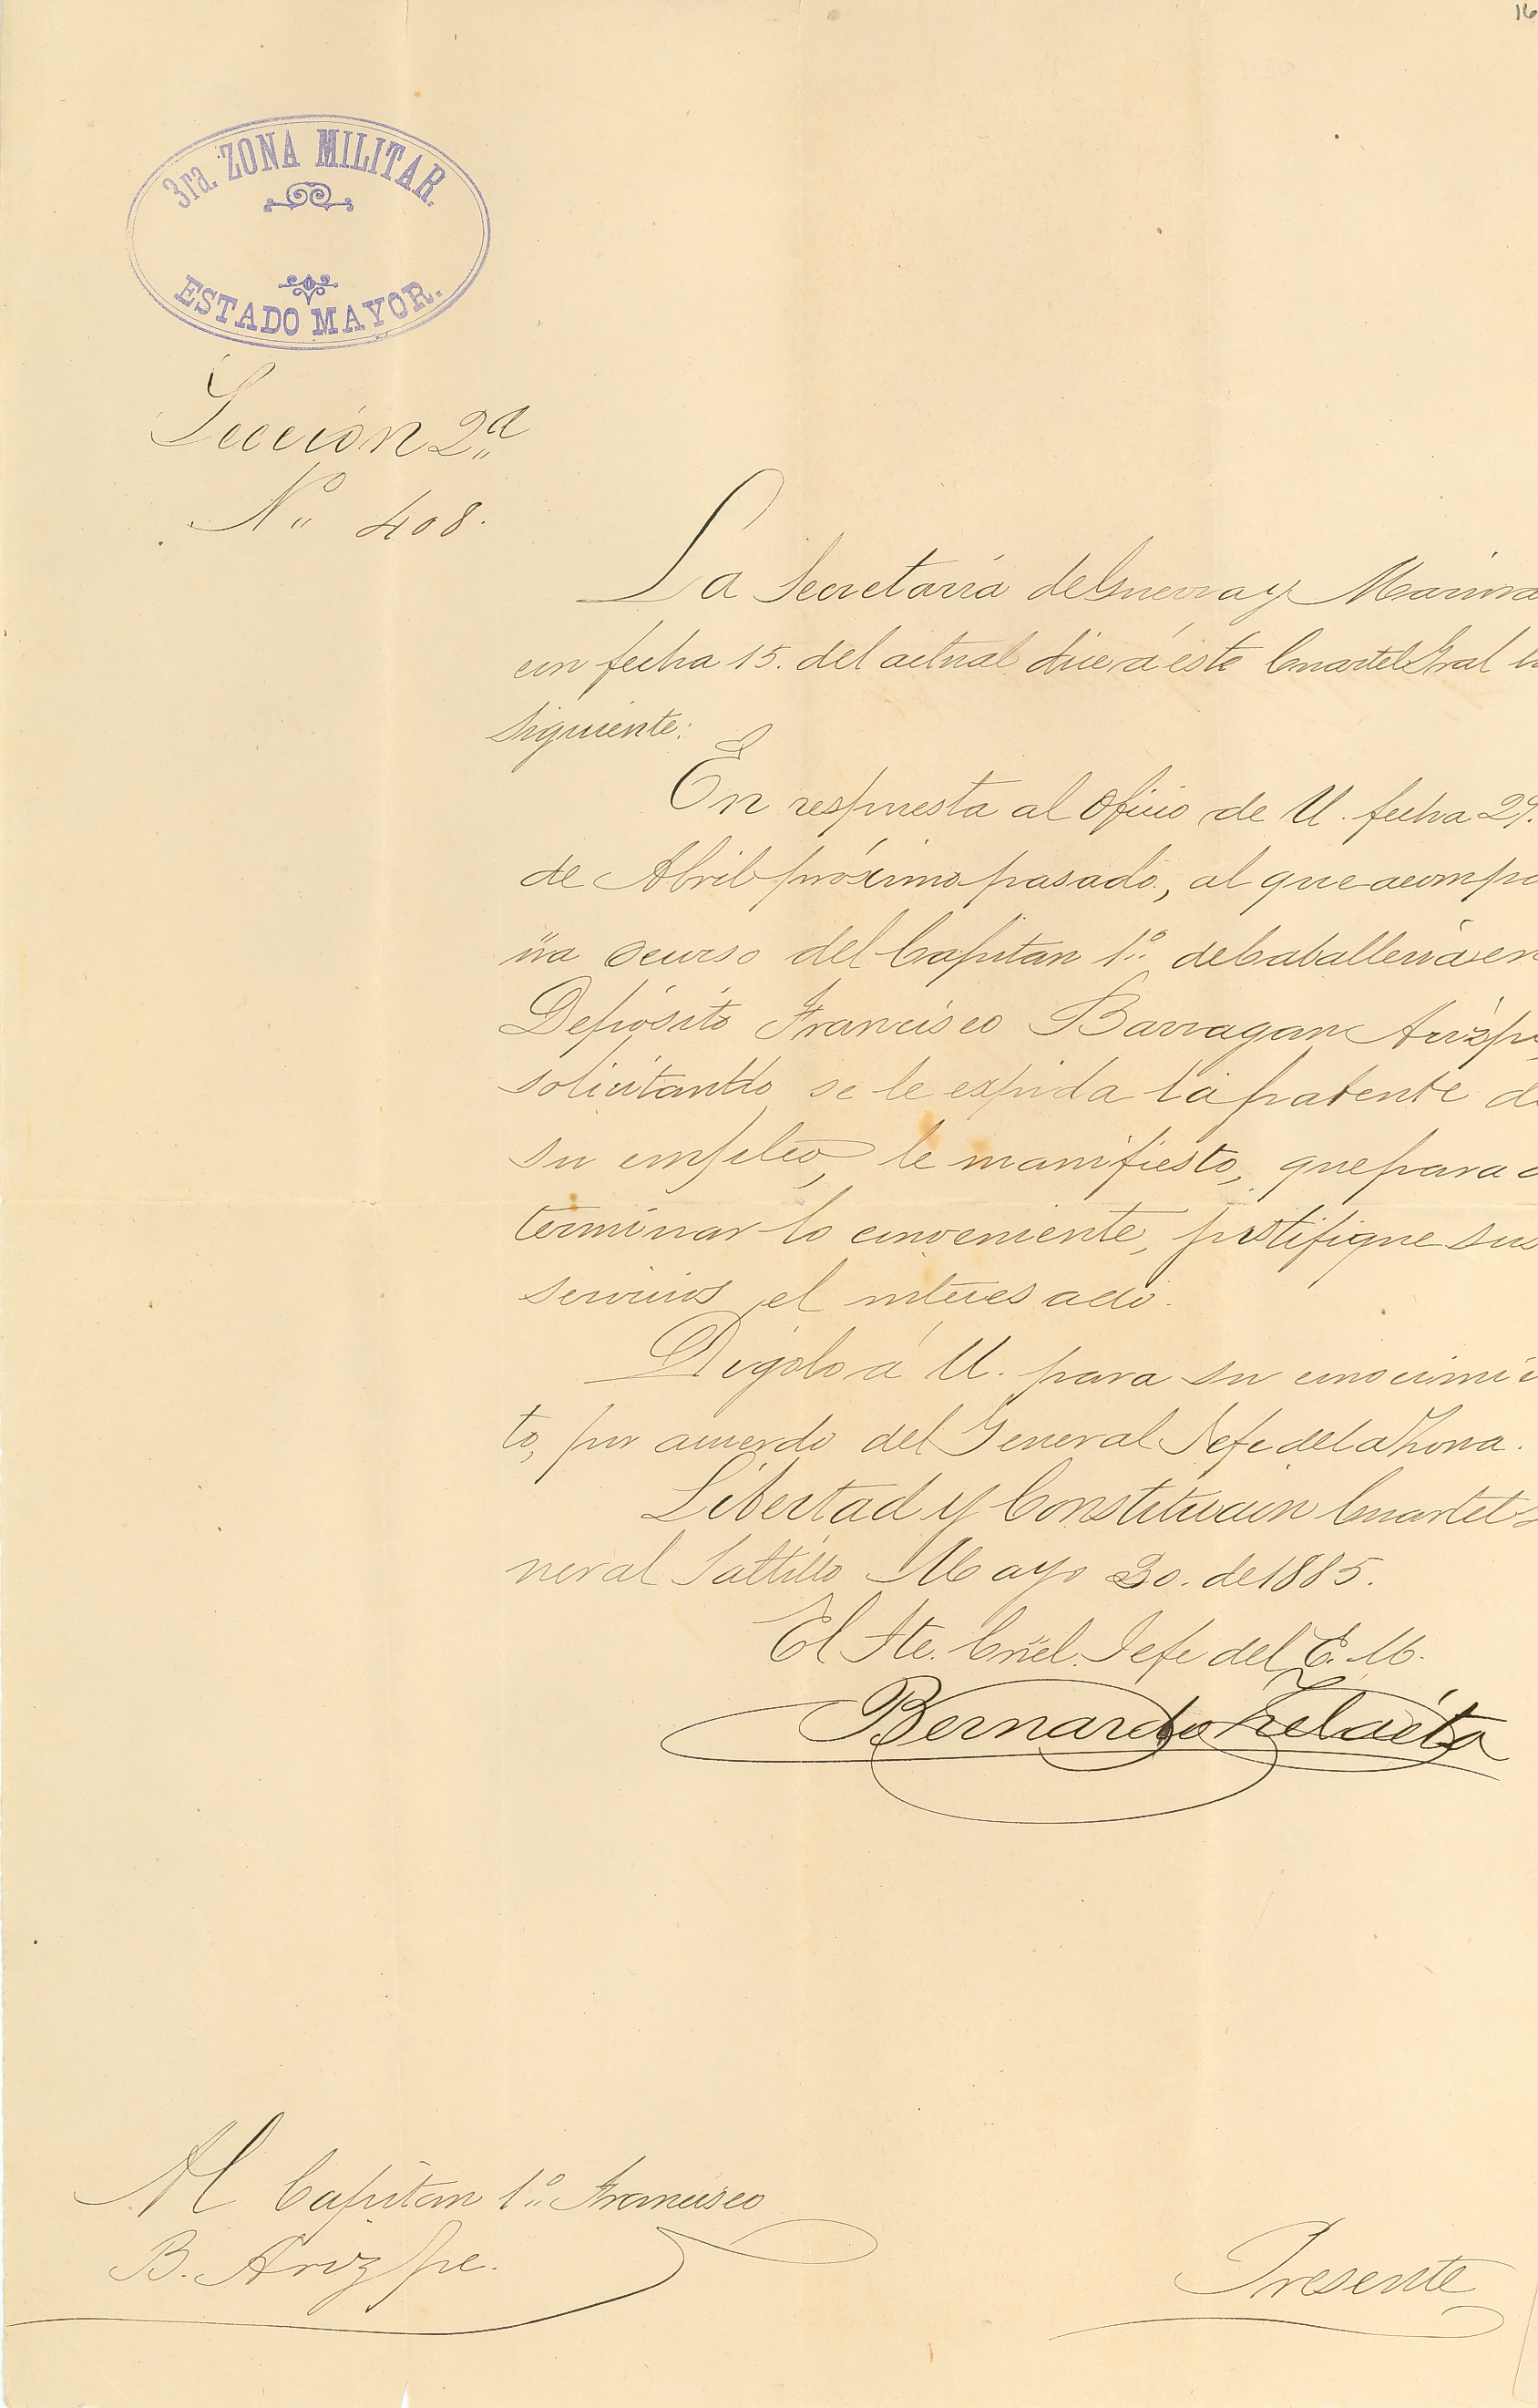 16
3ra. ZONA MILITAR.
ESTADO MAYOR.
Sección 2ª
Nº 408.
La Secretaria de Guerra y Marina
en fecha 15. del actual dice á este Cuartel Gral lo
siguiente:
En respuesta al Oficio de U. fecha 29.
de Abril próximo pasado, al que acompa
ña ocurso del Capitan 1º de Caballeria en
Depósito Francisco Barragan Arizpe
solicitando se le expida la patente de
su empleo, le manifiesto, que para de
terminar lo conveniente, justifique sus
servicios el interesado.
Digolo á U. para su conocimien
to, por acuerdo del General Jefe de la Zona.
Libertad y Constitucion Cuartel Ge
neral Saltillo Mayo 20. de 1885.
El Tte. Cnel. Jefe del E. M.
Bernardo Zelaéta
Al Capitan 1º Francisco
B. Arizpe.
Presente